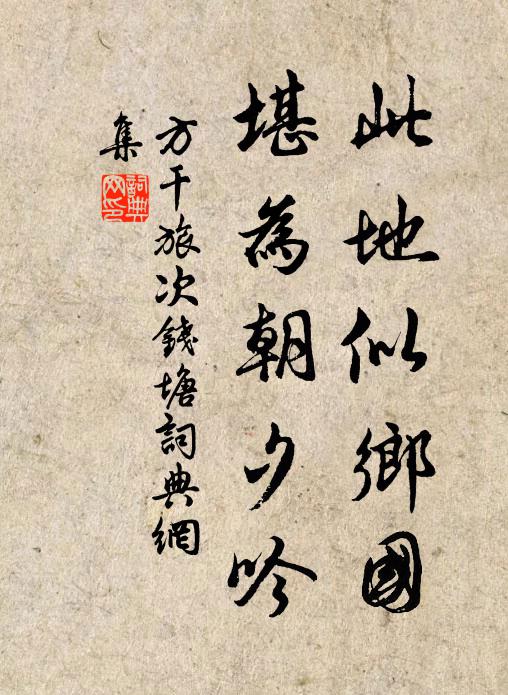 此地似鄉國
堪為朝夕吟
方干旅次錢塘詞典網
集
詞典
网印